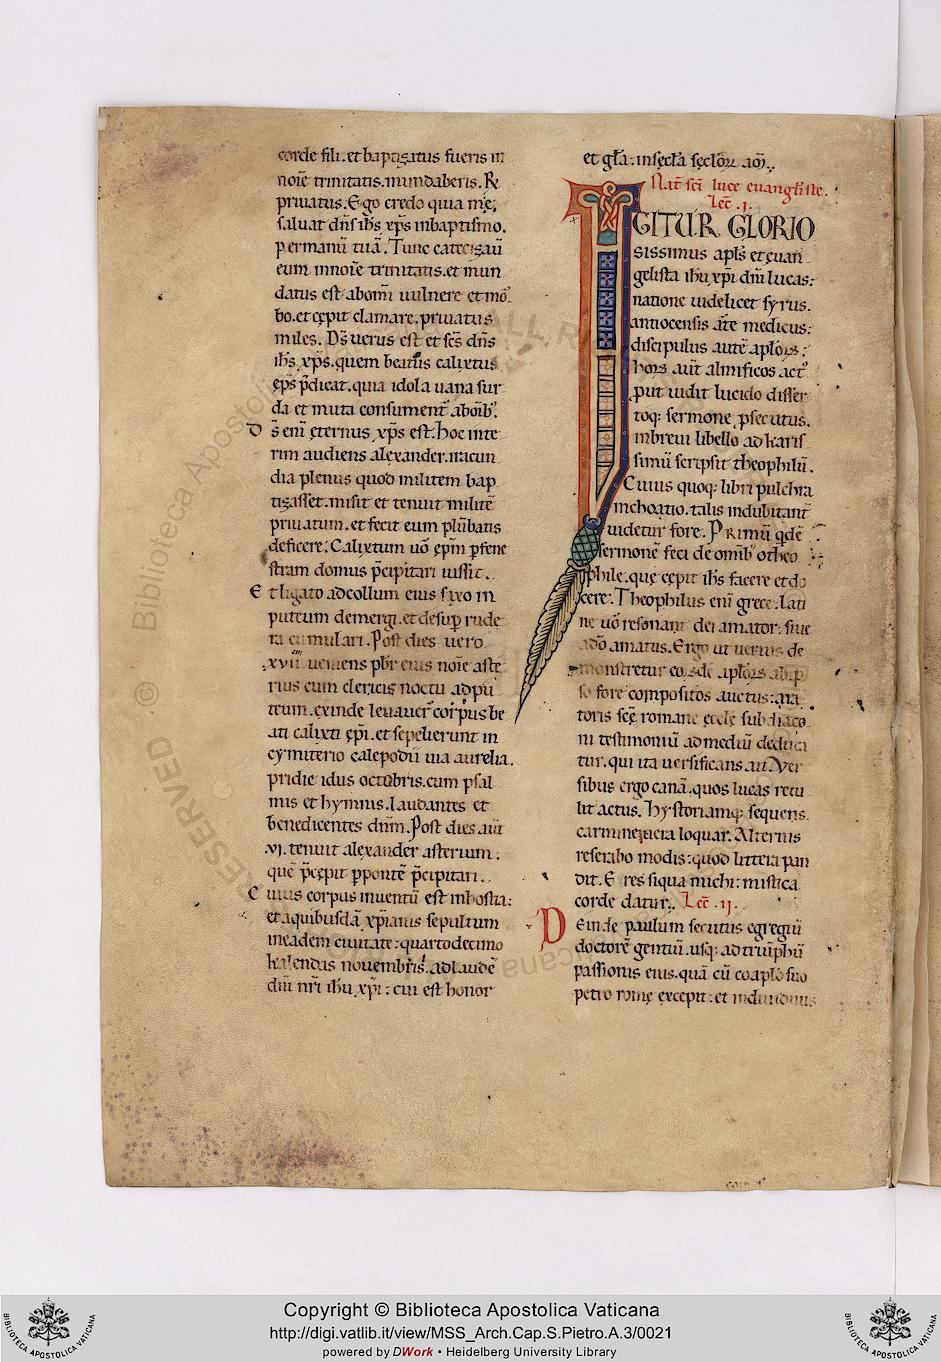 corde fili. et baptizatus fueris in
noīe trinitatis. mundaberis. R̄
priuatus. Ego credo quia me,
saluat dn̄s ih̄s xp̄s inbaptismo.
permanū tuā. Tunc catecizauī
eum innoīe trinitatis. et mun
datus est abom̄i uulnere et mō
bo. et cępit clamare. priuatus
miles. Ds̄ uerus est et sc̄s dn̄s
ih̄s xp̄s. quem beatus calixtus
ep̄s p̄dicat. quia idola uana sur
da et muta consument abom̄ib;
D s̄ enī ęternus xp̄s est. hoc inte
rim audiens alexander. iracun
dia plenus quod militem bap
tizasset. misit et tenuit militē
priuatum. et fecit eum plūbatis
deficere. Calixtum uō ep̄m p̄ fene
stram domus p̄cipitari iussit.
E t ligato adcollum eius saxo in
puteum demergi. et desuꝑ rude
ra cumulari. Post dies uero
xvii. ueniens pb̄r eius noīe aste
rius cum clericis noctu ad pu
teum. exinde leuauer̄ corpus be
ati calixti ep̄i. et sepelierunt in
cymiterio calepodii uia aurelia.
pridie idus octubris. cum psal
mis et hymnis. laudantes et
benedicentes dn̄m. Post dies aūt
.vi. tenuit alexander asterium.
quē p̄cepit p̄ pontē p̄cipitari.
C uius corpus inuentū est inhostia:
et aquibusdā xp̄ianis sepultum
ineadem ciuitate: quartodecimo
kalendas nouembris. adlaudē
dn̄i nr̄i ih̄u xp̄i: cui est honor
et gl̄a. insęcl̄a sęclorꝝ am̄.
Nat̄ sc̄i luce euangl̄iste.
Lec̄ .i.
IGITUR GLORIO
sissimus apl̄s et euan
gelista ih̄u xp̄i dn̄i lucas:
natione uidelicet syrus.
antiocensis arte medicus:
discipulus autē aplorꝝ:
horꝝ aūt almificos act;
put uidit lucido disser
toq; sermone ꝓsecutus.
inbreui libello ad karis
simū scripsit theophilū.
Cuius quoq; libri pulchra
inchoatio. talis indubitant̄
uidetur fore. Primū qdē
sermonē feci de omīb; o theo
phile. quę cępit ih̄s facere et do
cere. Theophilus enī grece. lati
ne uō resonant dei amator: siue
adō amatus. Ergo ut uerius de
monstretur eosdē aplorꝝ ab ip
so fore compositos auctus: ara
toris scę̄ romane ęcclę subdiaco
ni testimoniū ad mediū deduca
tur. qui ita uersificans ait. Ver
sibus ergo canā. quos lucas retu
lit actus. hystoriamq; sequens.
carmine uera loquar. Alternis
reserabo modis: quod littera pan
dit. E res siqua michi: mistica
corde datur. Lec̄ .ii.
DEinde paulum secutus egregiū
doctorē gentiū. usq; ad triūphū
passionis eius. quā cū coapl̄o suo
petro romę excepit: et indiuiduus
Copyright © Biblioteca Apostolica Vaticana
http://digi.vatlib.it/view/MSS_Arch.Cap.S.Pietro.A.3/0021
powered by DWork • Heidelberg University Library
BIBLIOTECA APOSTOLICA VATICANA
BIBLIOTECA APOSTOLICA VATICANA